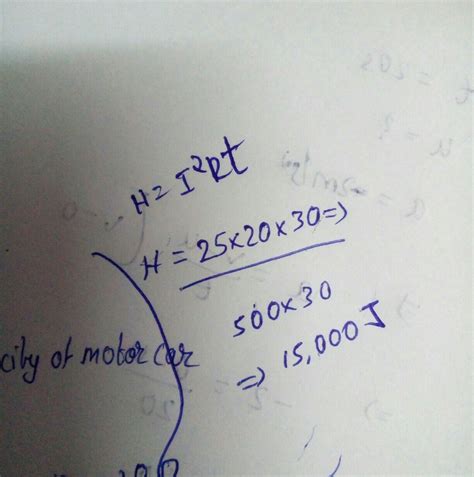 H = I²Rt
H = 25×20×30 ⇒
500×30
⇒ 15,000 J
city of motor car